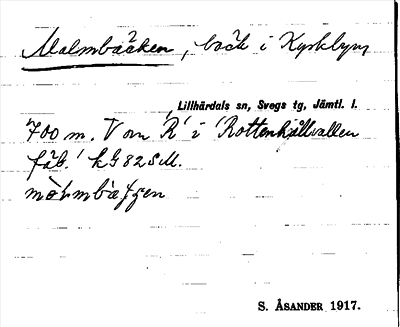 Malmbäcken, bäck i Kyrkbyn,
Lillhärdals sn, Svegs tg, Jämtl. l.
700 m. V om 'R' i 'Rottenhållvallen
fäb.' kg 82 SM.
S. ÅSANDER 1917.